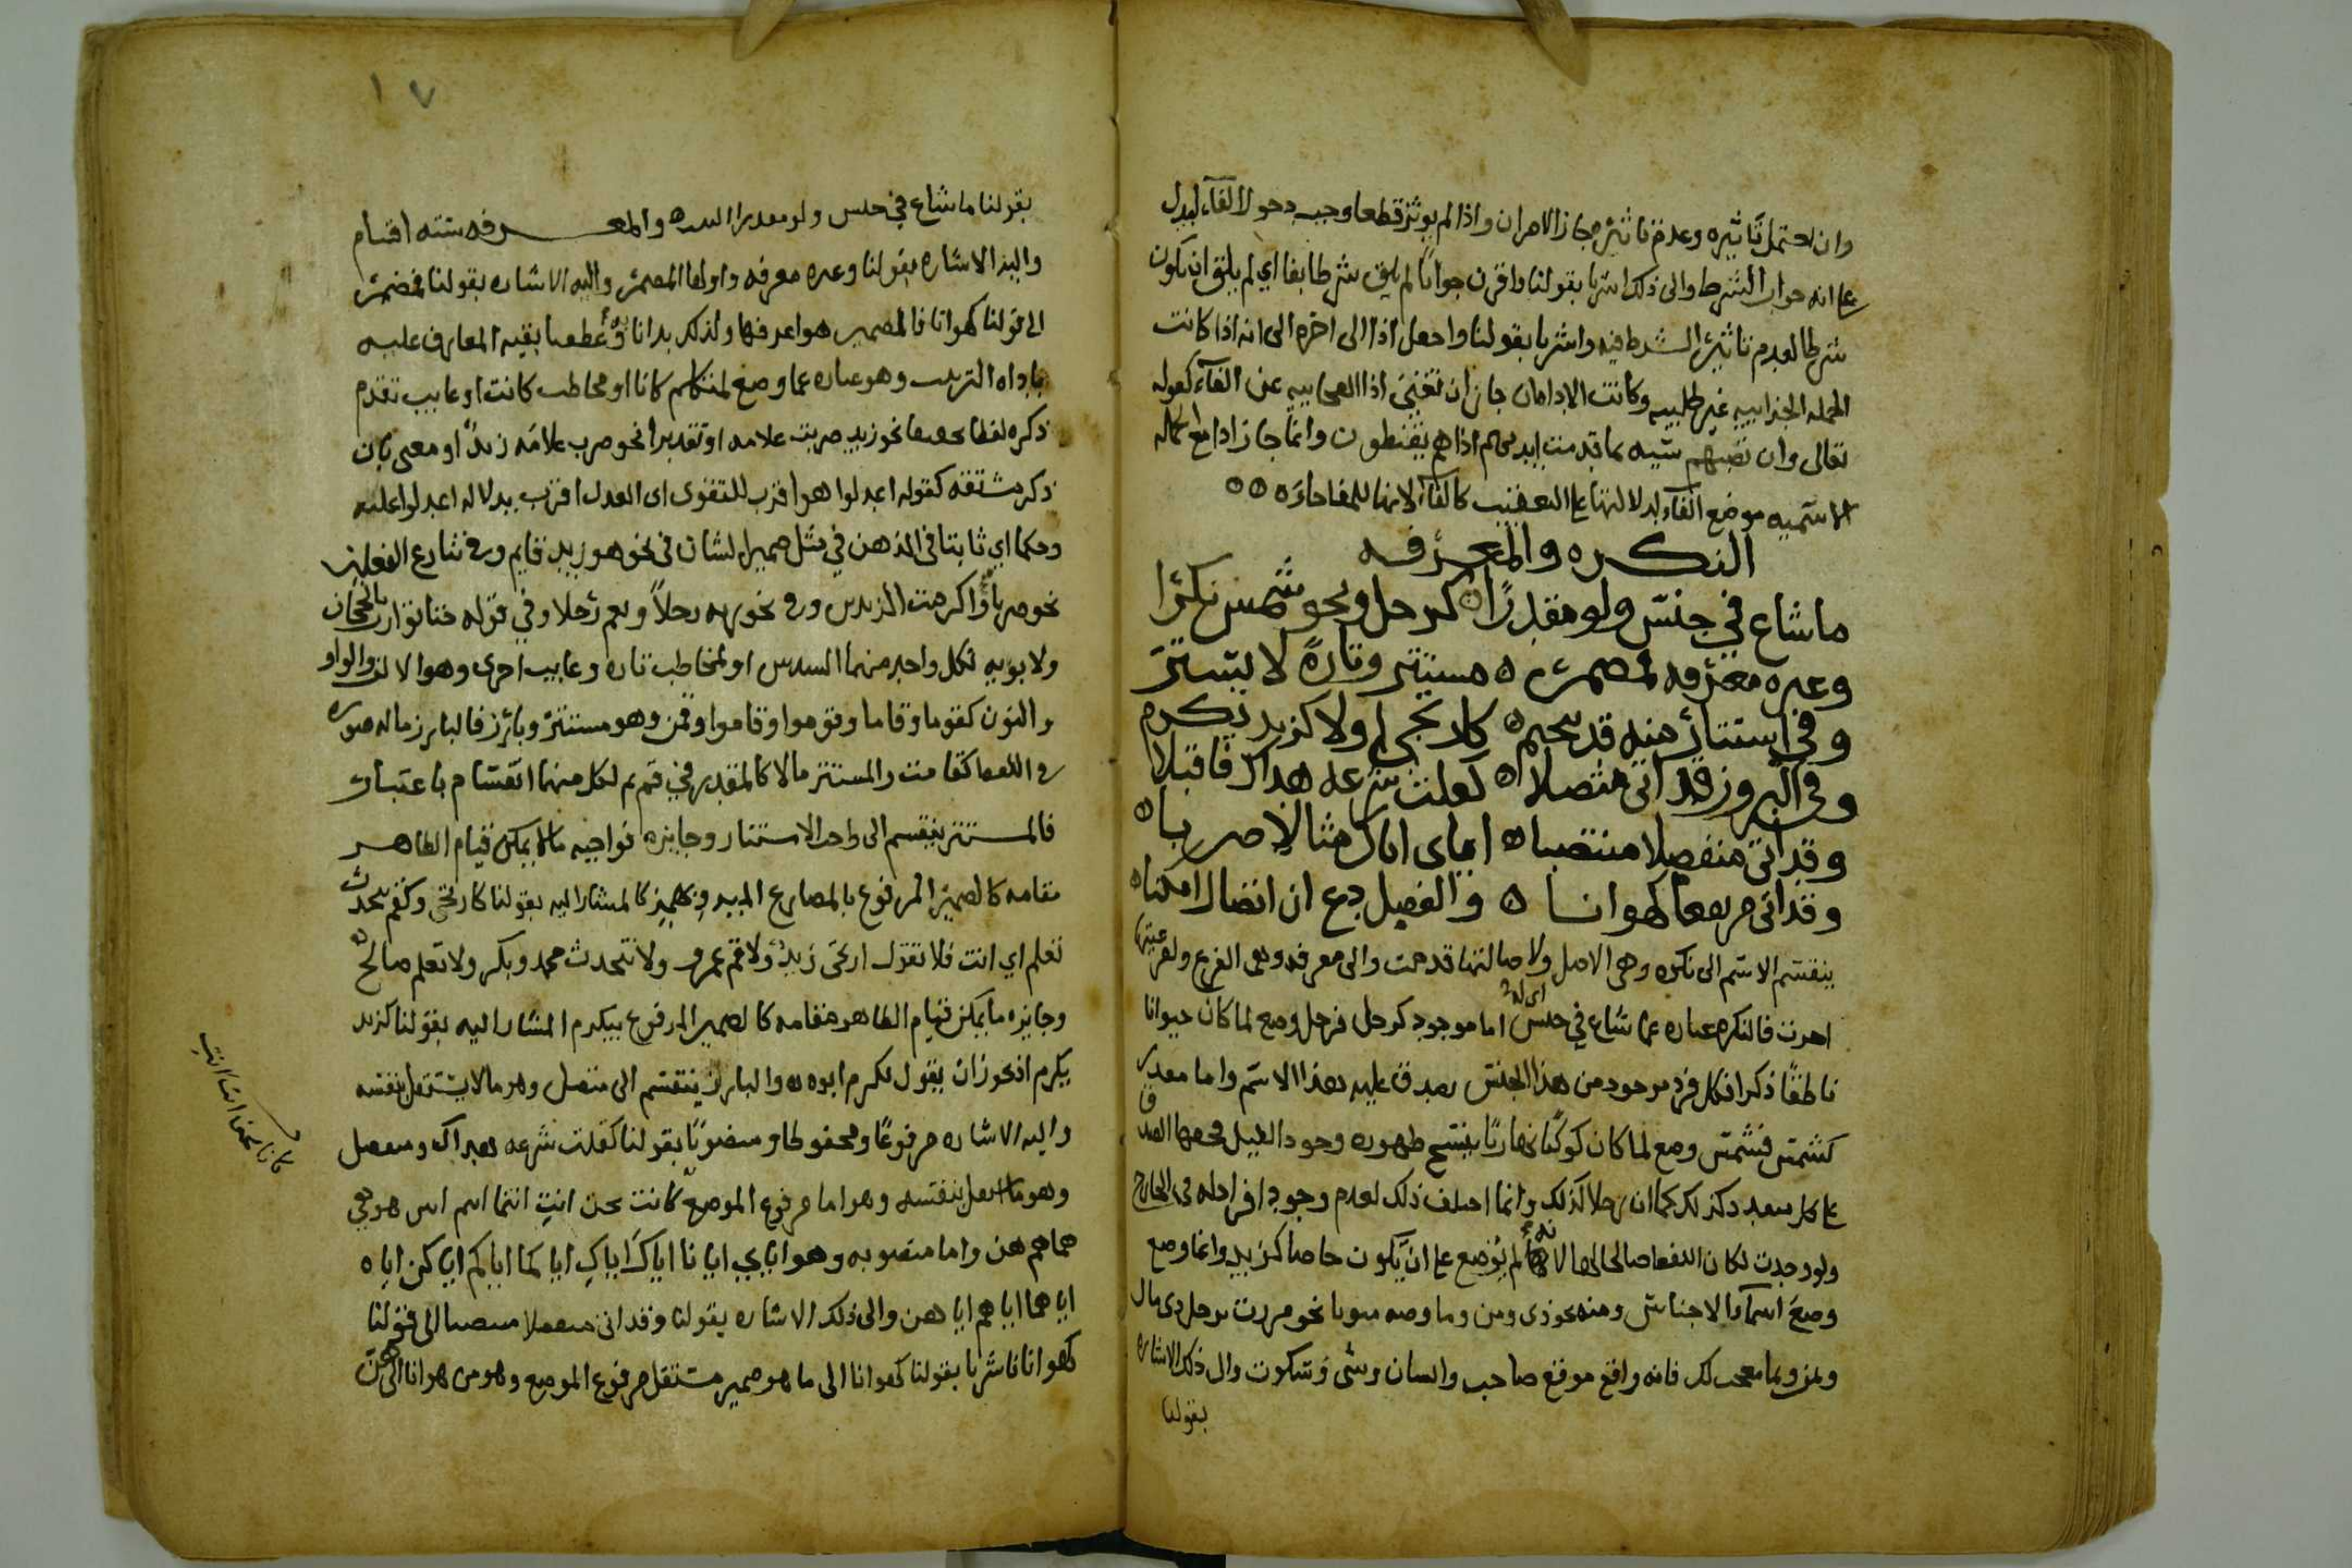 وان احتمل تاثيره وعدم تاثيره جاز الامران واذا لم يوثر قطعا وجب دخول الفآء ليدل
على انه جواب الشرط والى ذلك اشرنا بقولنا واقرن جوابا لم يلق شرطا بفا اي لم يلق ان يكون
شرطا لعدم تاثير الشرط فيه واشرنا بقولنا واجعل اذا الى اخره الى انه اذا كانت
الجمله الجزاييه غير طلبيه وكانت الاداه ان جاز ان تغني اذا الفجاييه عن الفآء كقوله
تعالى وان تصبهم سيه بما قدمت ايديهم اذا هم يقنطون وانما جاز اذا مع الجمله
الاسميه موضع الفآء لدلالتها على التعقيب كالفآء لانها للمفاجاه
النكره والمعرفه
ما شاع في جنس ولو مقدرا كرجل ونحو شمس نكرا
وغيره معرفه لمضمر مستتر وتارة لا يستتر
وفي استتار منه قد يحتم كارتجي ولا كزيد يكرم
وفي البروز قد اتى متصلا كقلت شرعه هداك فاقبلا
وقد اتى منفصلا منتصبا اياي اياك مثالا ضربا
وقد اتى مرتفعا كهو انا والفصل دع ان اتصال امكنا
ينقسم الاسم الى نكره وهي الاصل ولاصالتها قدمت والى معرفه وهي الفرع ولفرعيتها
اخرت فالنكره عباره عما شاع في جنس اما موجود كرجل فرجل وضع لما كان حيوانا
ناطقا ذكرا فكل فرد موجود من هذا الجنس يصدق عليه هذا الاسم واما مقدر
كشمس فشمس وضع لما كان كوكبا نهاريا ينسخ ظهوره وجود الليل فحقها الصدق
على كل متعدد كذلك كما ان رجلا كذلك وانما اختلف ذلك لعدم وجود افراد له في الخارج
ولو وجدت لكان اللفظ صالحا لها لانه لم يوضع على ان يكون خاصا كزيد وانما وضع
وضع اسمآء الاجناس ومنه نحو ذي ومن وما وصه منونا نحو مررت برجل ذي مال
وبمن وبما معجب لك فانه واقع موقع صاحب وانسان وشي وسكوت والى ذلك الاشاره
بقولنا
١٧
بقولنا ما شاع في جنس ولو مقدرا والمعرفه سته اقسام
واليها الاشاره بقولنا وغيره معرفه واولها المضمر واليه الاشاره بقولنا لمضمر
الى قولنا كهو انا فالمضمر هو اعرفها ولذلك بدانا به وعطفنا بقيه المعارف عليه
باداه الترتيب وهو عباره عما وضع لمتكلم كانا او مخاطب كانت او غايب تقدم
ذكره لفظا نحو زيد ضربت غلامه او تقديرا نحو ضرب غلامه زيدا او معنى بان
ذكر مشتقه كقوله اعدلوا هو اقرب للتقوى اى العدل اقرب بدلاله اعدلوا عليه
وحكما اي ثابتا في الذهن في مثل ضمير الشان في نحو هو زيد قايم وفي تنازع الفعلين
نحو ضربا واكرمت الزيدين وفي نحو ربه رجلا ونعم رجلا وفي قوله حتى توارت بالحجاب
ولابويه لكل واحد منهما السدس او لمخاطب تاره وغايب اخرى وهو الالف والواو
والنون كقوما وقاما وقوموا وقاموا وقمن وهو مستتر وبارز فالبارز ما له صوره
في اللفظ كقامت والمستتر ما لا كالمقدر في قم ثم لكل منهما انقسام باعتبار
فالمستتر ينقسم الى واجب الاستتار وجايزه فواجبه ما لا يمكن قيام الظاهر
مقامه كالضمير المرفوع بالمضارع كالمشار اليه بقولنا كارتجي وكقم نتحدث
تعلم اي انت فلا تقول ارتجى زيد ولا قم عمرو ولا نتحدث محمد وبكر ولا تعلم صالح
وجايزه ما يمكن قيام الظاهر مقامه كالضمير المرفوع بيكرم المشار اليه بقولنا كزيد
يكرم اذ يجوز ان يقول يكرم ابوه والبارز ينقسم الى متصل وهو ما لا يستقل بنفسه
واليه الاشاره مرفوعا ومخفوضا ومنصوبا بقولنا كقلت شرعه هداك ومنفصل
وهو ما استقل بنفسه وهو اما مرفوع الموضع كانت نحن انت انتما انتم انتن هو هي
هما هم هن واما منصوبه وهو اياي ايانا اياك اياك اياكما اياكم اياكن اياه
اياهما اياهم اياهن والى ذلك الاشاره بقولنا وقد اتى منفصلا منتصبا الى قولنا
كهو انا فاشرنا بقولنا كهو انا الى ما هو ضمير مستقل مرفوع الموضع وهو من هو انا الى هن